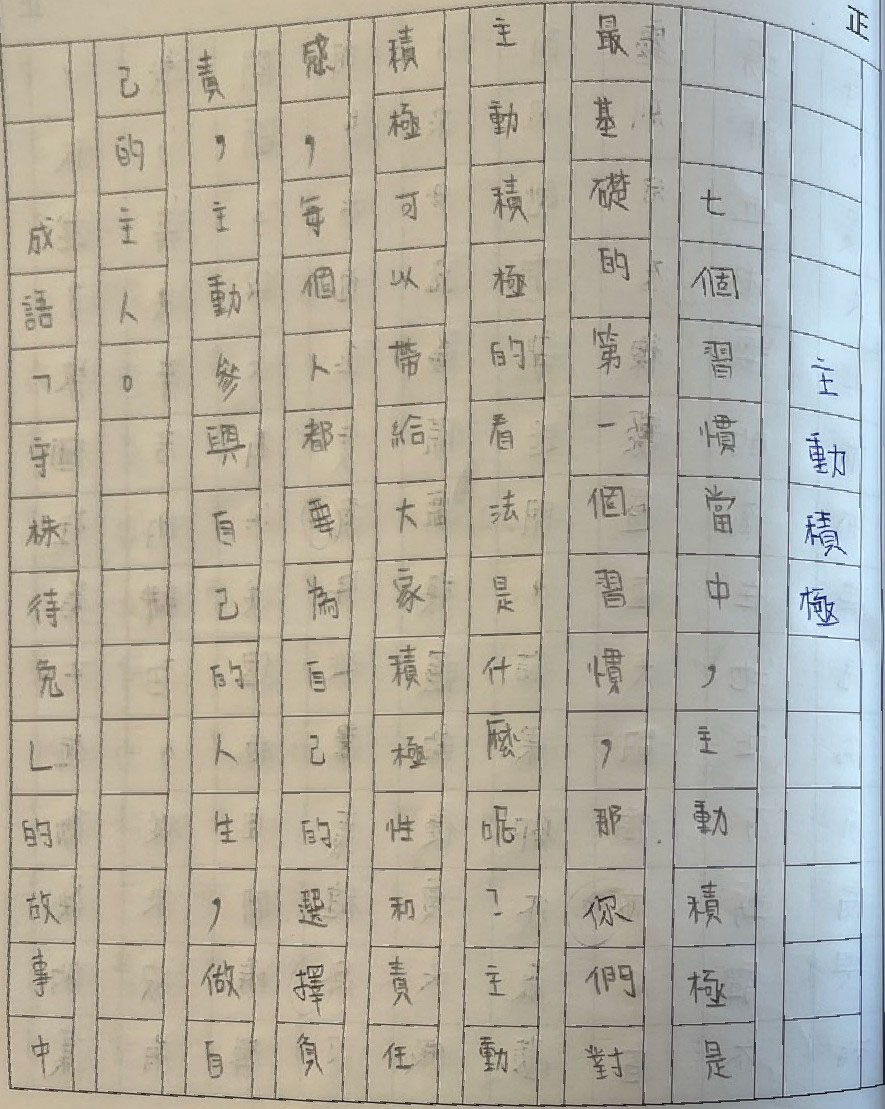 正
主動積極
七個習慣當中，主動積極是
最基礎的第一個習慣，那你們對
主動積極的看法是什麼呢？主動
積極可以帶給大家積極性和責任
感，每個人都要為自己的選擇負
責，主動參與自己的人生，做自
己的主人。
成語「守株待兔」的故事中